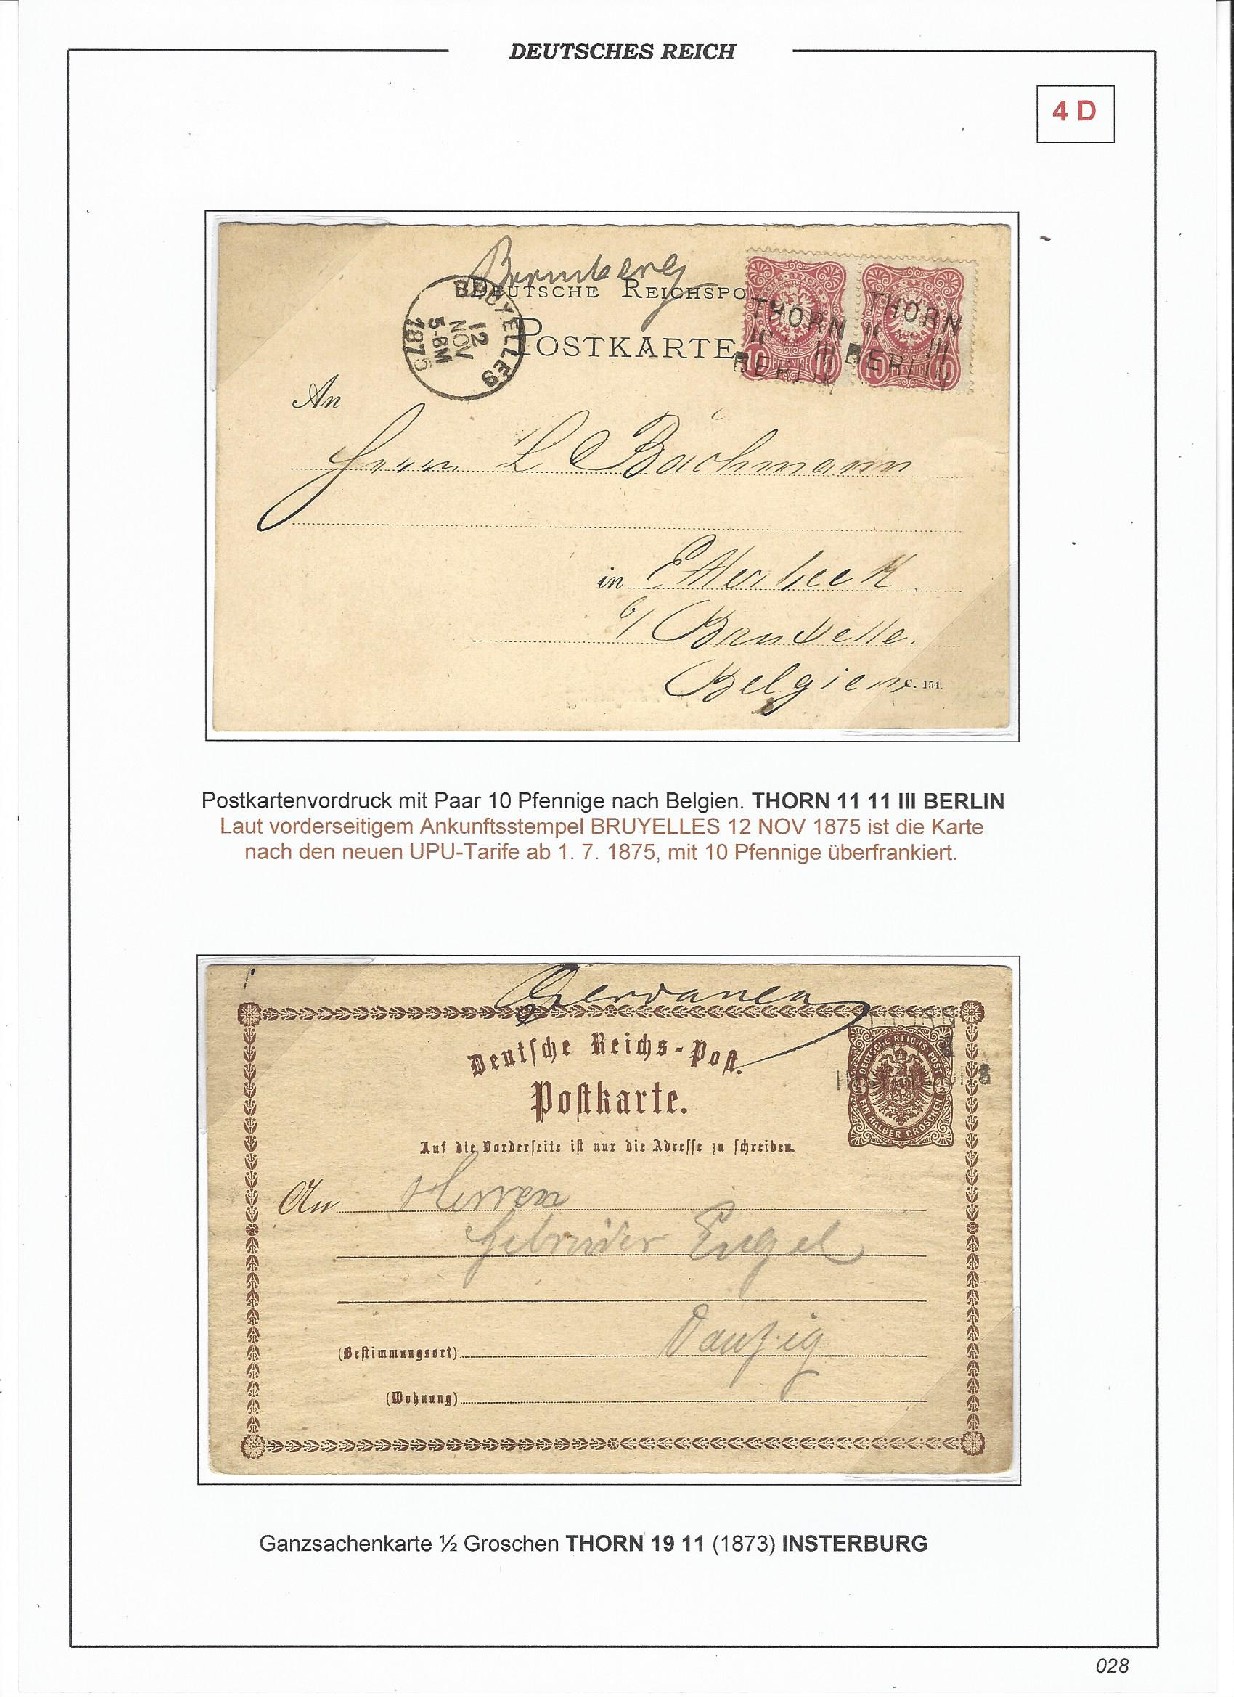 DEUTSCHES REICH
4 D
Bromberg
DEUTSCHE REICHSPO
POSTKARTE
BRUYELLES
12
NOV
5-8M
1875
THORN THORN
11 III 11 III
BERLIN BERLIN
An
Herrn L Bachmann
in Etterbeck
b/ Bruxelle.
Belgien
C. 154.
Postkartenvordruck mit Paar 10 Pfennige nach Belgien. THORN 11 11 III BERLIN
Laut vorderseitigem Ankunftsstempel BRUYELLES 12 NOV 1875 ist die Karte
nach den neuen UPU-Tarife ab 1. 7. 1875, mit 10 Pfennige überfrankiert.
Deutsche Reichs-Post.
Postkarte.
Auf die Vorderseite ist nur die Adresse zu schreiben.
DEUTSCHE REICHS-POST
EIN HALBER GROSCHEN
An Herren
Gebrüder Engel
Danzig
(Bestimmungsort)
(Wohnung)
Ganzsachenkarte ½ Groschen THORN 19 11 (1873) INSTERBURG
028